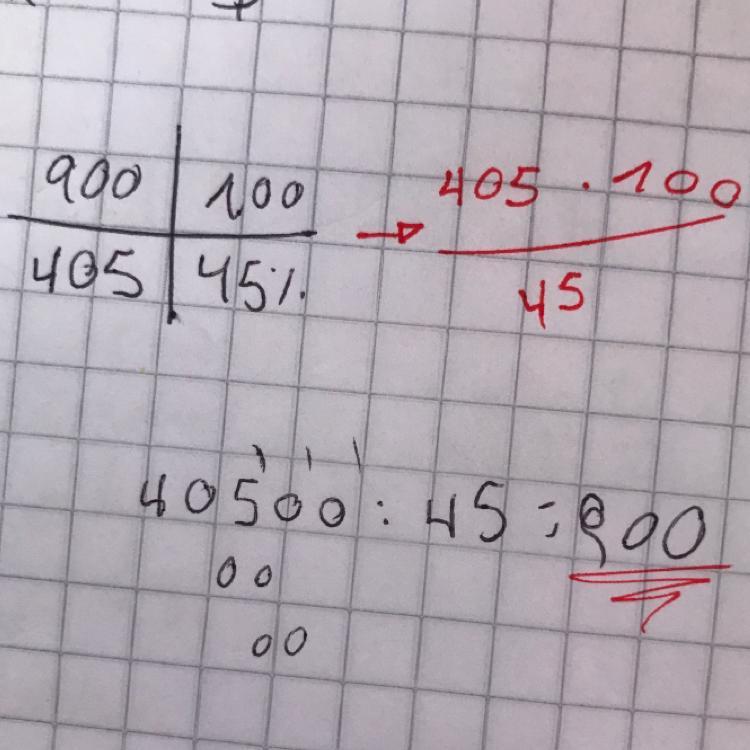 900 | 100 → 405 · 100
405 | 45% 45
40500 : 45 = 900
00
00